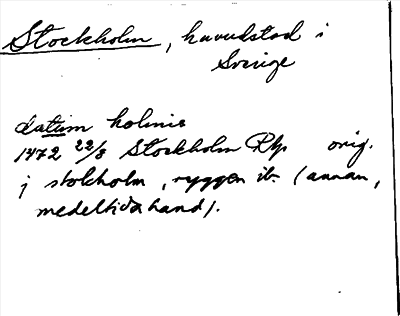 Stockholm, huvudstad i
Sverige
datum holmie
1472 22/8 Stockholm Rp orig.
i stokholm, ryggen ib. (annan,
medeltida hand).